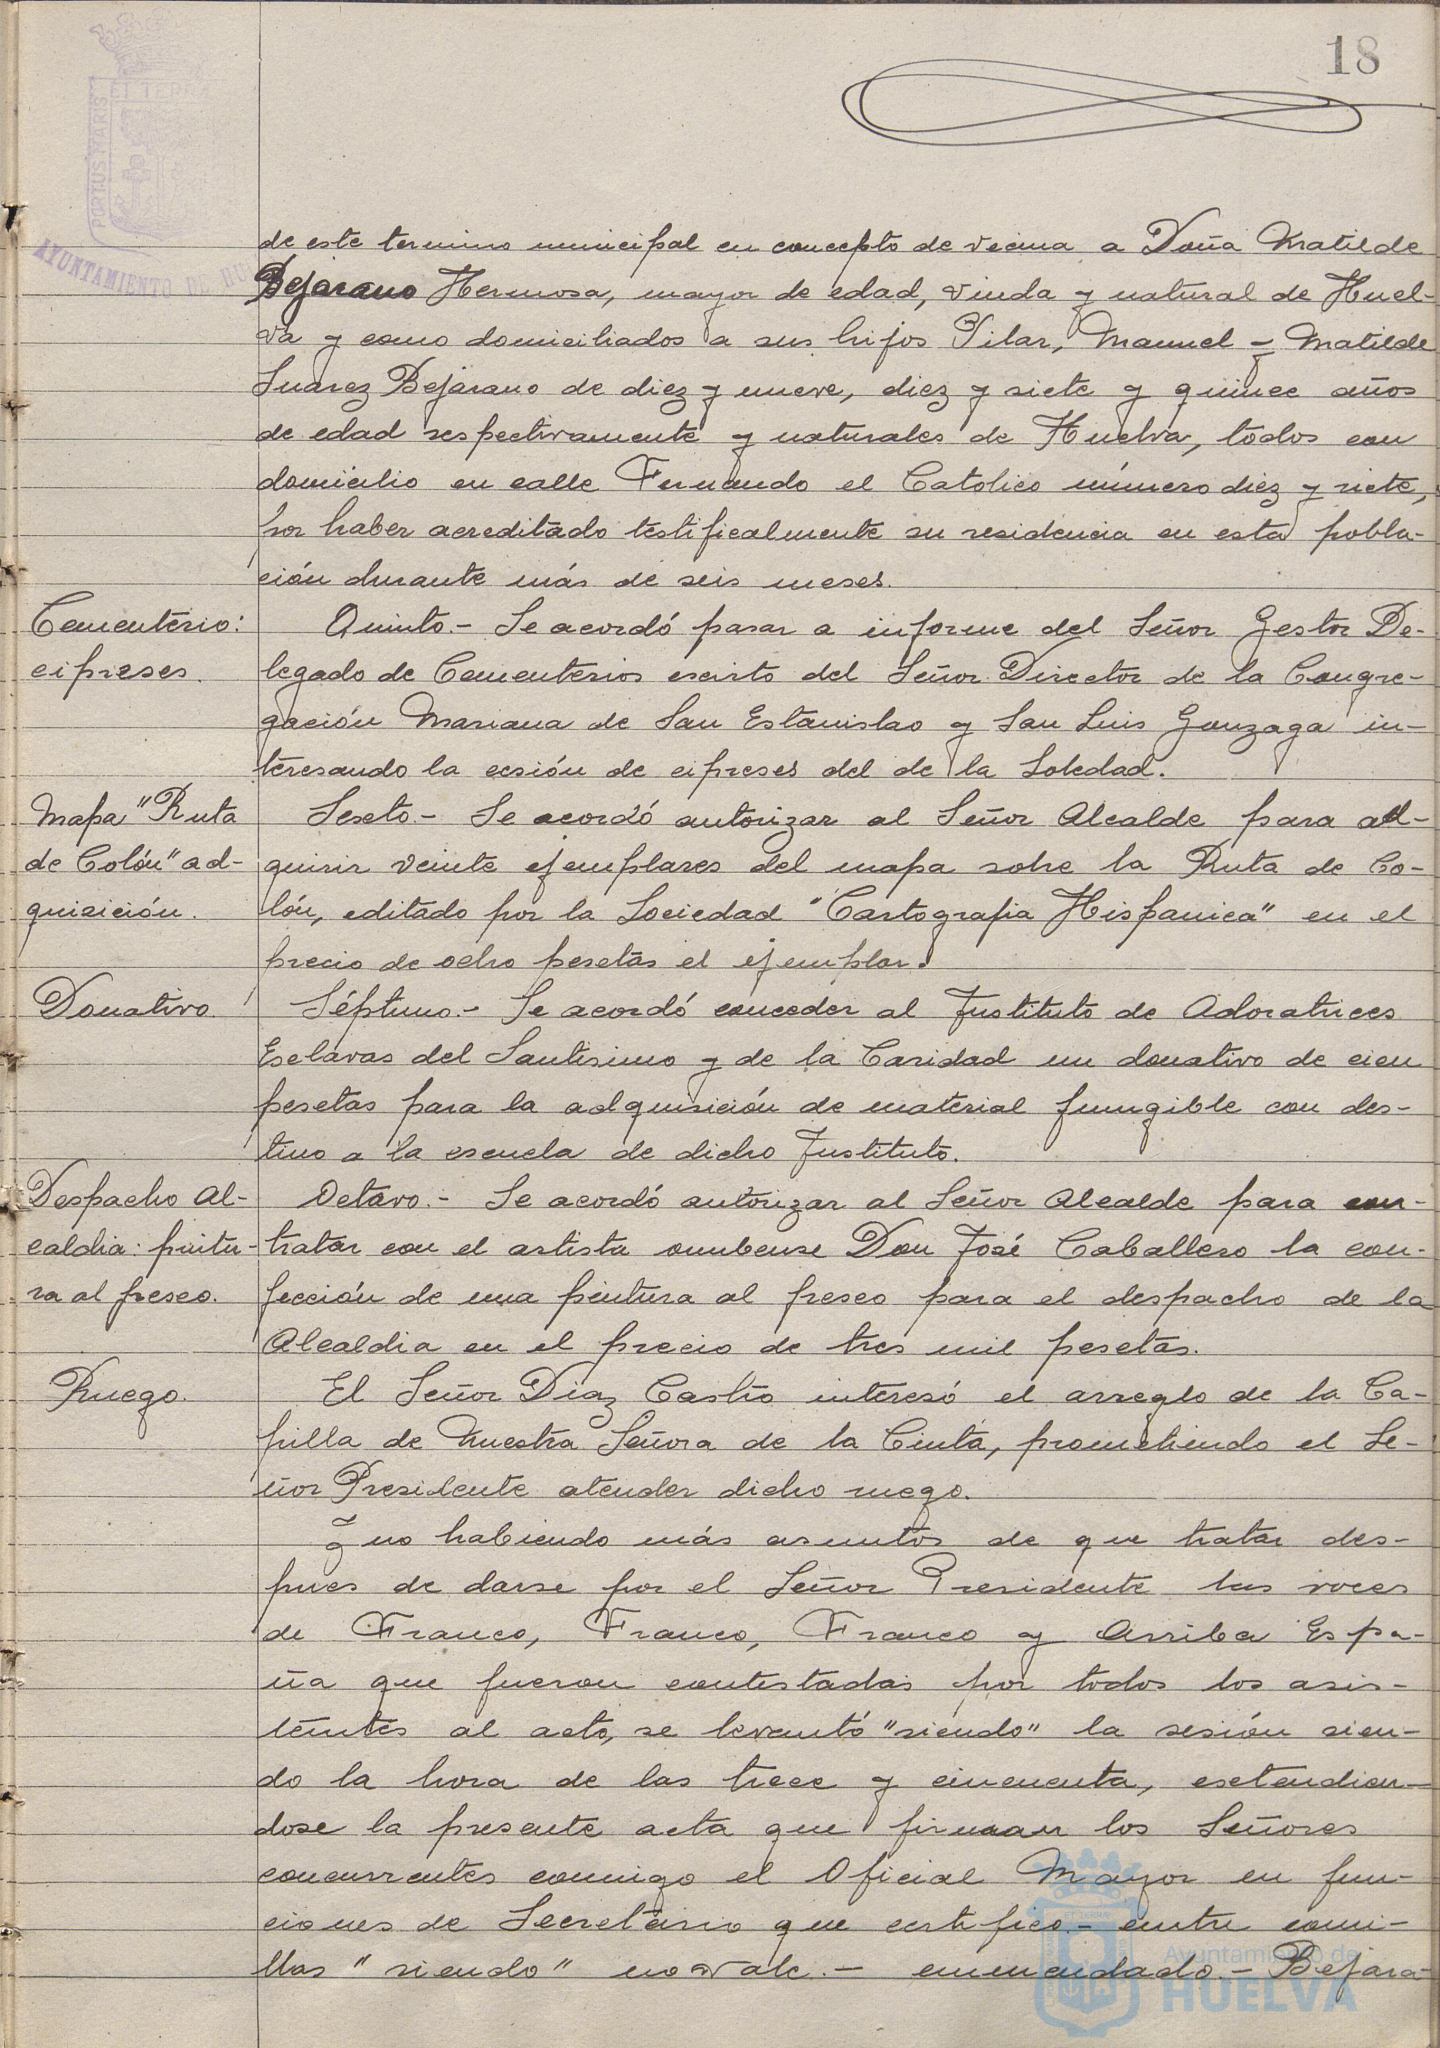 18
PORTUS MARIS
ET TERRA
AYUNTAMIENTO DE HU
de este termino municipal en concepto de vecina a Doña Matilde
Bejarano Hermosa, mayor de edad, viuda y natural de Huel-
va y como domiciliados a sus hijos Pilar, Manuel y Matilde
Suarez Bejarano de diez y nueve, diez y siete y quince años
de edad respectivamente y naturales de Huelva, todos con
domicilio en calle Fernando el Catolico número diez y siete,
por haber acreditado testificalmente su residencia en esta pobla-
ción durante más de seis meses.
Cementerio:
cipreses.
Quinto.- Se acordó pasar a informe del Señor Gestor De-
legado de Cementerios escrito del Señor Director de la Congre-
gación Mariana de San Estanislao y San Luis Gonzaga in-
teresando la cesión de cipreses del de la Soledad.
Mapa "Ruta
de Colón" ad-
quisición.
Sexto.- Se acordó autorizar al Señor Alcalde para ad-
quirir veinte ejemplares del mapa sobre la Ruta de Co-
lón, editado por la Sociedad "Cartografia Hispanica" en el
precio de ocho pesetas el ejemplar.
Donativo.
Séptimo.- Se acordó conceder al Instituto de Adoratrices
Esclavas del Santisimo y de la Caridad un donativo de cien
pesetas para la adquisición de material fungible con des-
tino a la escuela de dicho Instituto.
Despacho Al-
caldia: pintu-
ra al fresco.
Octavo.- Se acordó autorizar al Señor Alcalde para con-
tratar con el artista onubense Don José Caballero la con-
fección de una pintura al fresco para el despacho de la
Alcaldia en el precio de tres mil pesetas.
Ruego.
El Señor Diaz Castro interesó el arreglo de la Ca-
pilla de Nuestra Señora de la Cinta, prometiendo el Se-
ñor Presidente atender dicho ruego.
Y no habiendo más asuntos de que tratar des-
pues de darse por el Señor Presidente las voces
de Franco, Franco, Franco y Arriba Espa-
ña que fueron contestadas por todos los asis-
tentes al acto, se levantó "siendo" la sesión sien-
do la hora de las trece y cincuenta, extendien-
dose la presente acta que firman los Señores
concurrentes conmigo el Oficial Mayor en fun-
ciones de Secretario que certifico.- entre comi-
llas "siendo" no vale.- enmendado.- Bejara-
Ayuntamiento de
HUELVA